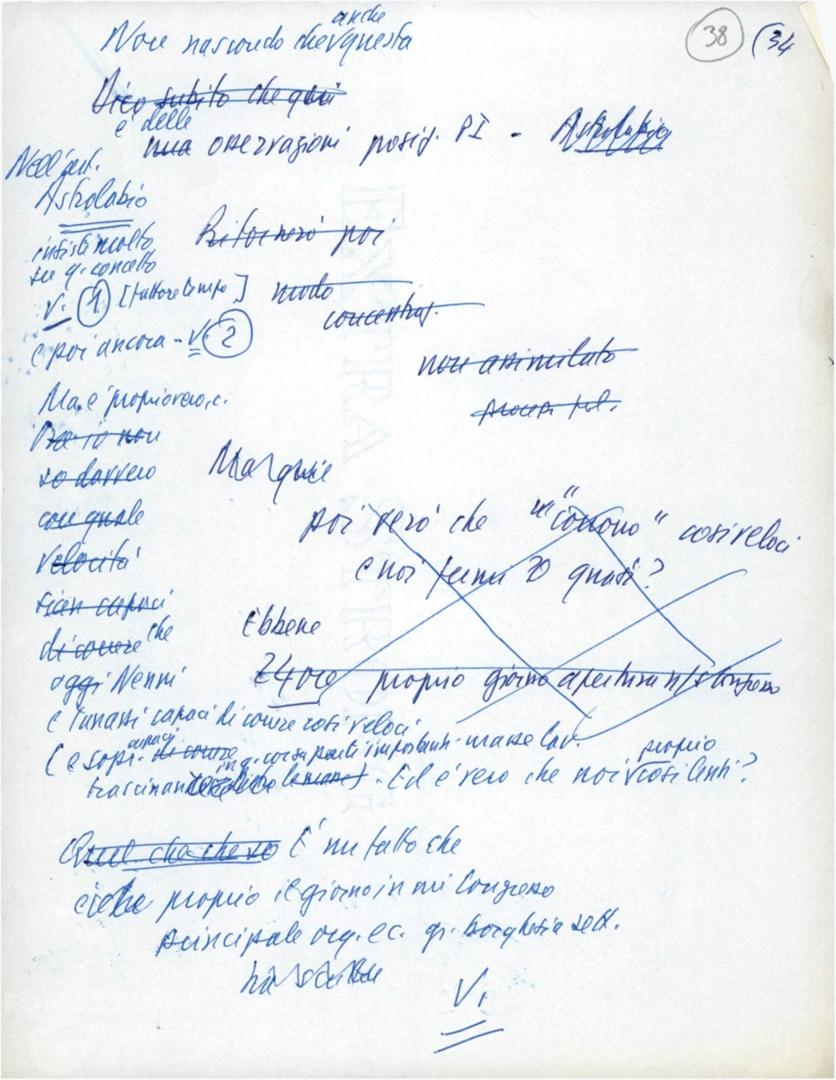 38 (34
anche
Non nascondo che questa
Dico subito che qui
è delle
una osservazioni posiz. PI - Astrolabio
Nell'art.
Astrolabio
insisti molto
su q. concetto
V. 1 [fattore tempo]
e poi ancora - V. 2
Ritornerò poi
modo
concentraz.
non assimilato
Ma è proprio vero, c.
so davvero
con quale
velocità
sian capaci
di correre che
oggi Nenni
Ma qui
poi vero che "corrono" così veloci
e noi fermi o quasi?
Ebbene
24 ore proprio giorno apertura n/s Congresso
e Tanassi capaci di correre così veloci
(e sopr. capaci di correre in q. corsa parti importanti masse lav.
proprio
trascinando. Ed è vero che noi così lenti?
Quel che che so È un fatto che
che proprio il giorno in cui Congresso
principale org. ec. gr. borghesia sett.
ha
V.